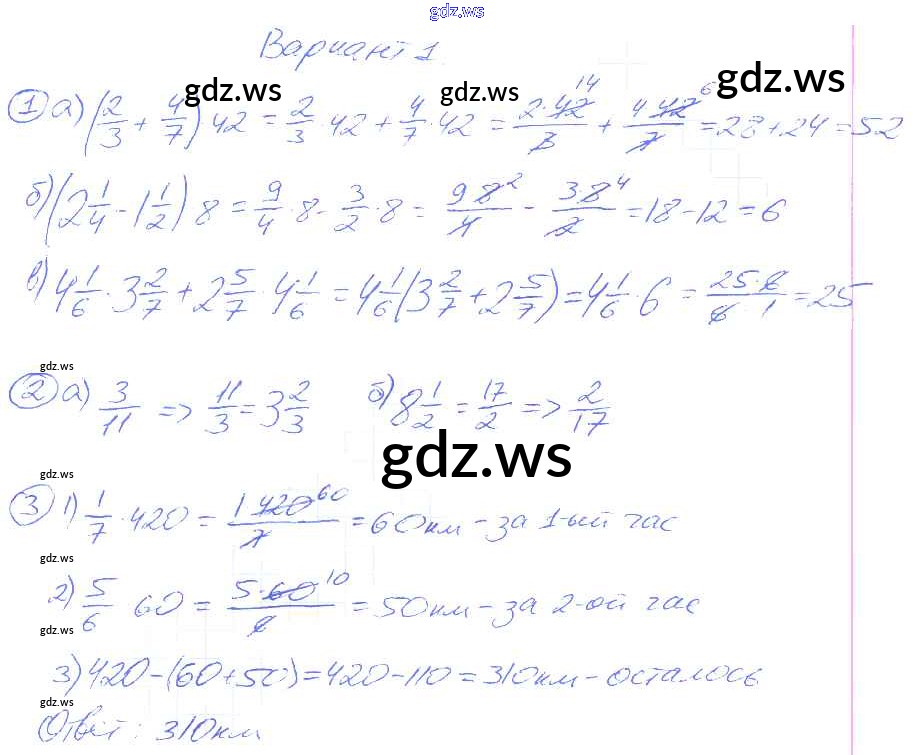 gdz.ws
Вариант 1
gdz.ws gdz.ws gdz.ws
1 а) (2/3 + 4/7) 42 = 2/3 · 42 + 4/7 · 42 = 2·42 14/3 + 4 42 6/7 = 28 + 24 = 52
б) (2 1/4 - 1 1/2) 8 = 9/4 · 8 - 3/2 · 8 = 9 8 2/4 - 3·8 4/2 = 18 - 12 = 6
в) 4 1/6 · 3 2/7 + 2 5/7 · 4 1/6 = 4 1/6 (3 2/7 + 2 5/7) = 4 1/6 · 6 = 25·6/6·1 = 25
gdz.ws
2 а) 3/11 => 11/3 = 3 2/3 б) 8 1/2 = 17/2 => 2/17
gdz.ws
gdz.ws
3 1) 1/7 · 420 = 1 420 60/7 = 60км - за 1-ый час
gdz.ws
2) 5/6 60 = 5·60 10/6 = 50км - за 2-ой час
gdz.ws
3) 420 - (60 + 50) = 420 - 110 = 310км - осталось
gdz.ws
Ответ: 310км